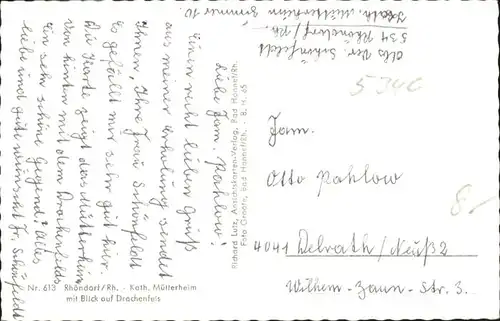 Abs. Frau Schönfeldt
534 Rhöndorf/Rh.
Kath. Mütterheim Zimmer 10.
Liebe Fam. Pahlow!
Einen recht lieben Gruß
aus meiner Erholung sendet
Ihnen, Ihre Frau Schönfeldt
Es gefällt mir sehr gut hier.
Die Karte zeigt das Mütterheim
von hinten mit dem Drachenfels
Ein sehr schöne Gegend! Alles
liebe und gute wünscht Fr. Schönfeldt
Nr. 613 Rhöndorf/Rh. - Kath. Mütterheim
mit Blick auf Drachenfels
Richard Lutz, Ansichtskarten-Verlag, Bad Honnef/Rh.
Foto Groote, Bad Honnef/Rh. - B. H. 65
5340
Fam.
Otto Pahlow
8,-
4041 Delrath/Neuß 2
Wilhem-Zaun-Str. 3.